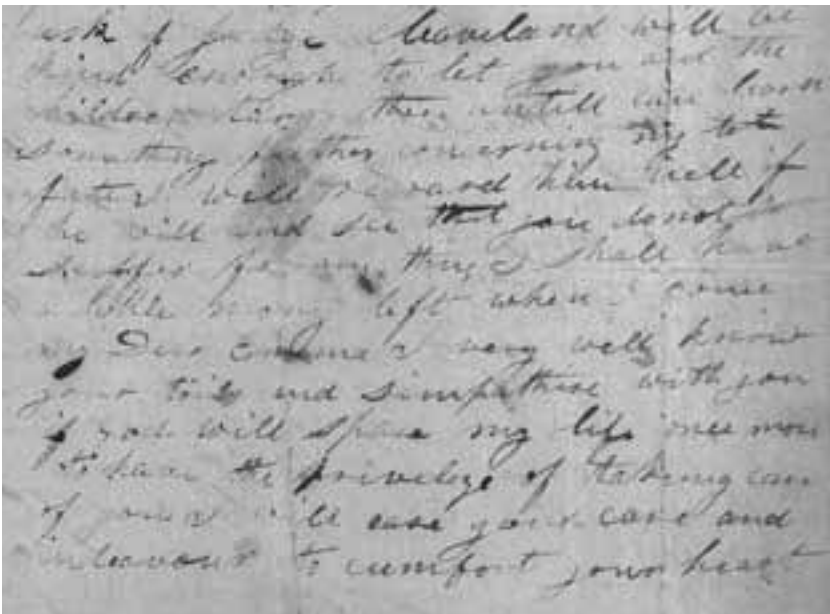 ask if judge Cleaveland will be
kind enough to let you and the
children tarry there untill can learn
something further concerning my lot
fate I will reward him well if
he will and see that you donot
suffer for any thing I shall have
a little mony left when I come
my Dear Emma I very well know
your toils and simpathise with you
if god will spare my life once more
to have the privelege of takeing care
of you I will ease your care and
indeavour to cumfort your heart